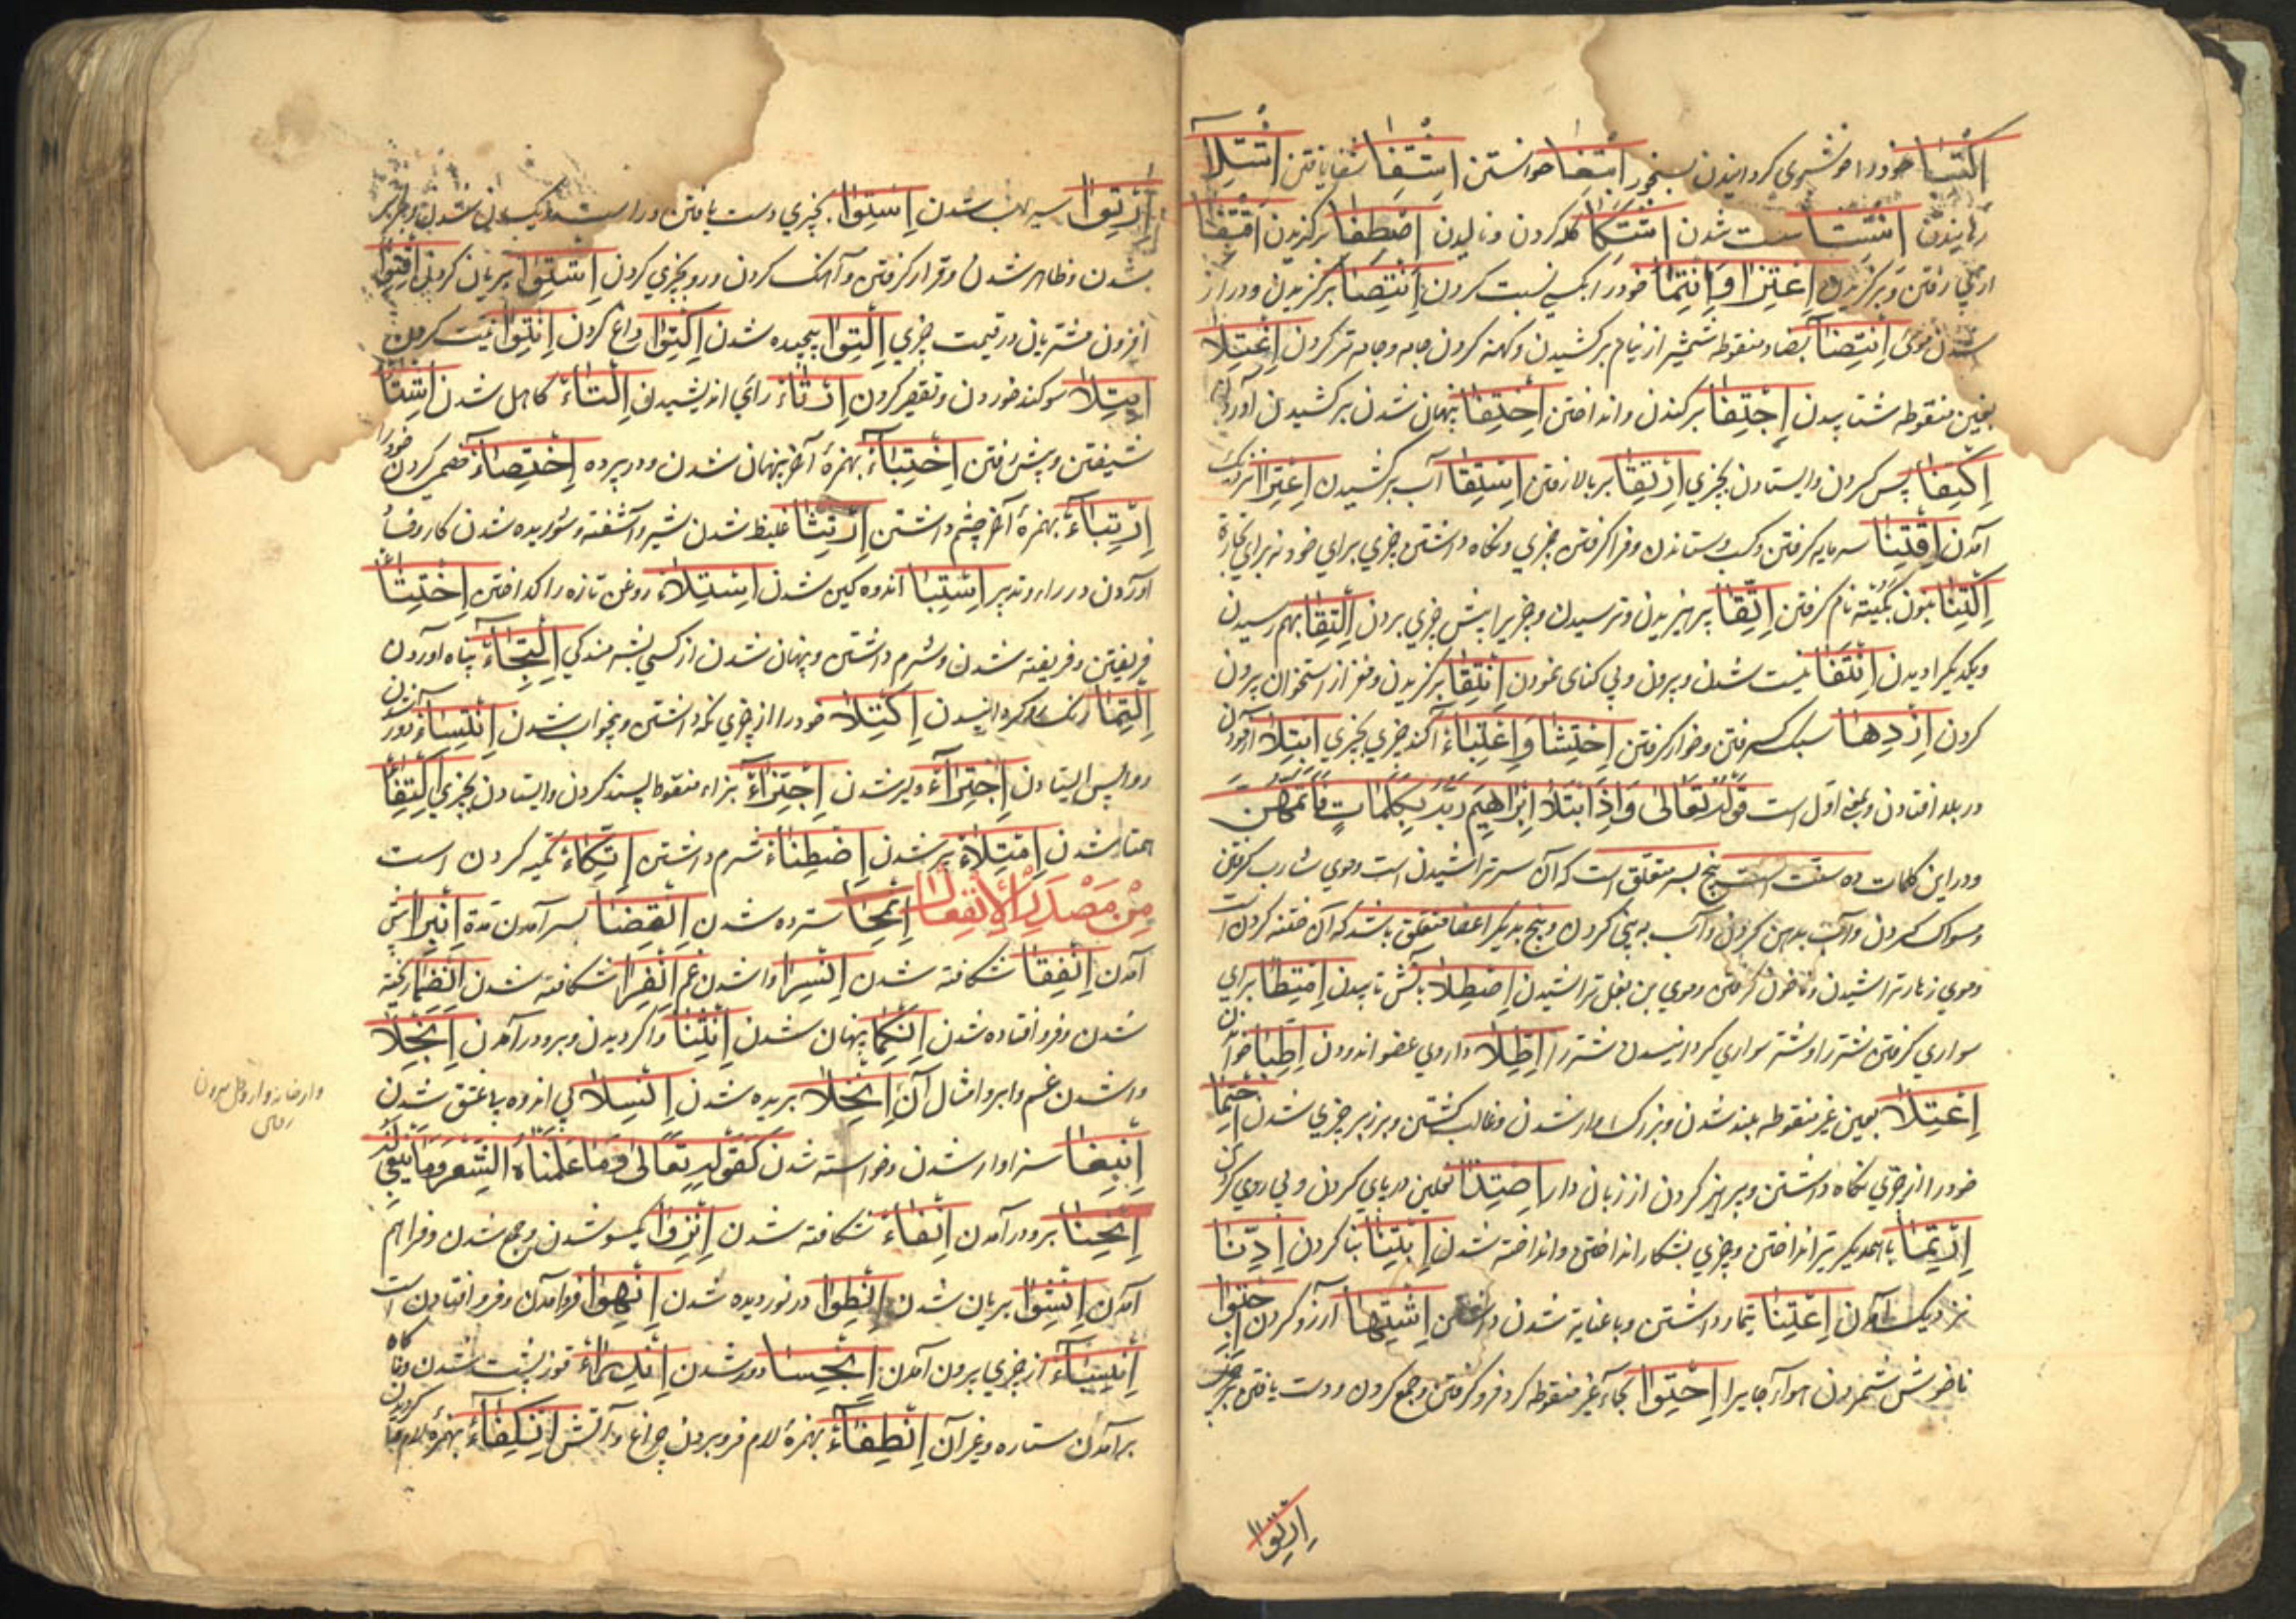 خود را خوشبوی گردانیدن ببخور ابتغا خواستن اشتفا شفا یافتن
سست شدن اشتکا گله کردن و نالیدن اصطفا برگزیدن اقتفا
از پی رفتن و برگزیدن اعتزا و انتما خود را بکسی نسبت کردن انتصا برگزیدن و دراز
شدن موی انتضا بضاد منقوطه شمشیر از نیام برکشیدن و کهنه کردن جامه
بغین منقوطه شتابیدن اجتفا برکندن و انداختن اختفا پنهان شدن برکشیدن
اکتفا بس کردن و ایستادن بچیزی ارتقا بر بالا رفتن استقا آب برکشیدن اعترا نزدیک
آمدن اقتنا سرمایه گرفتن و کسب و ستاندن و فرا گرفتن چیزی و نگاه داشتن چیزی برای خود نه برای تجارة
اکتنا بنون کنیته نام گرفتن اتقا پرهیزیدن و ترسیدن و چیزی را پیش چیزی بردن التقا بهم رسیدن
و یکدیگر را دیدن انتفا نیست شدن و بیرون و بی کنای نمودن انتقا برگزیدن و مغز از استخوان بیرون
کردن ازدها سبک گرفتن و خوار گرفتن احتشا و اغلباء آکنده چیزی بچیزی ابتلا آزمودن
در بلا افتادن و بمعنی اول است قوله تعالی و اذا ابتلا ابراهیم ربه بکلمات فاتمهن
و در این کلمات ده سنت است پنج بسر متعلق است که آن سر تراشیدن است و موی شارب گرفتن
و مسواک کردن و آب بدهن کردن و آب به بینی کردن و پنج بدیگر اعضا متعلق باشد که آن ختنه کردن است
و موی زهار تراشیدن و ناخون گرفتن و موی بن بغل تراشیدن اصطلا بآتش تابیدن امتطا برای
سواری گرفتن شتر را و شتر سواری گردانیدن شتر را اطلا داروی عضو اندودن اطبا خواندن
اعتلا بعین غیر منقوطه بلند شدن و بزرگ شدن و غالب گشتن و برزبر چیزی شدن احتما
خود را از چیزی نگاه داشتن و پرهیز کردن از زیان دار احتذا نعلین در پای کردن و پی روی کردن
ارتما با همدیگر تیر انداختن و چیزی بشکار انداختن و انداخته شدن ابتنا بنا کردن ادنا
نزدیک آمدن اعتنا تیمار داشتن و با عنایه شدن اشتها آرزو کردن اجتوا
ناخوش شمردن هوا و جای را احتوا بحاء غیر منقوطه گرد فرو گرفتن و جمع کردن و دست یافتن بر چیزی
ارتوا
ارتوا سیراب شدن استوا بچیزی دست یافتن و راست و یکسان شدن
شدن و ظاهر شدن و قرار گرفتن و آهنگ کردن و رو بچیزی کردن اشتوا بریان کردن اقتوا
افزون مشتریان در قیمت چیزی التوا پیچیده شدن اکتوا داغ کردن انتوا نیت کردن
ایتلا سوگند خوردن و تقصیر کردن ارتاء رای اندیشیدن التاء کاهل شدن
شیفتن و پیش رفتن اختباء بهمزهٔ آخر پنهان شدن و در پرده اختصاء خصی کردن خود را
ارتباء بهمزهٔ آخر چشم داشتن ارتثا غلیظ شدن شیر و آشفته و شوریده شدن کار
آوردن در رای و تدبیر استبا اندوه گین شدن استلاء روغن تازه را گداختن اختتاء
فریفتن و فریفته شدن و شرم داشتن و پنهان شدن از کسی بشرمندگی التجاء پناه آوردن
التما رنگ گردانیدن اکتلاء خود را از چیزی نگه داشتن و بیخواب شدن انتساء دور شدن
و واپس ایستادن اجتراء دلیر شدن اجتزاء بزاء منقوطه بسند کردن و ایستادن بچیزی اکتفاء
همتا شدن امتلاء پر شدن اضطناء شرم داشتن اتکاء تکیه کردن است
من مصدر الانفعال انمحا سترده شدن انقضا بسر آمدن مدة انبرا پیش
آمدن انفقا شکافته شدن انسرا واشدن غم انفرا شکافته شدن
شدن و فرو افتاده شدن انکما پنهان شدن انثنا واگردیدن و برو در آمدن انجلا
واشدن غم و ابر و امثال آن انخلا بریده شدن انسلا بی اندوه یا عشق شدن
انبغا سزاوار شدن و خواسته شدن کقوله تعالی و ما علمناه الشعر و ما ینبغی له
انحنا برو در آمدن انفاء شکافته شدن انزوا یکسو شدن و جمع شدن و فراهم
آمدن انشوا بریان شدن انطوا در نوردیده شدن انهوا فرود آمدن و فرو افتادن است
از چیزی بیرون آمدن انخسا دور شدن اندراء کوز پشت شدن
برآمدن ستاره و غیر آن انطفاء بهمزهٔ لام فرو مردن چراغ و آتش انکفاء بهمزهٔ لام